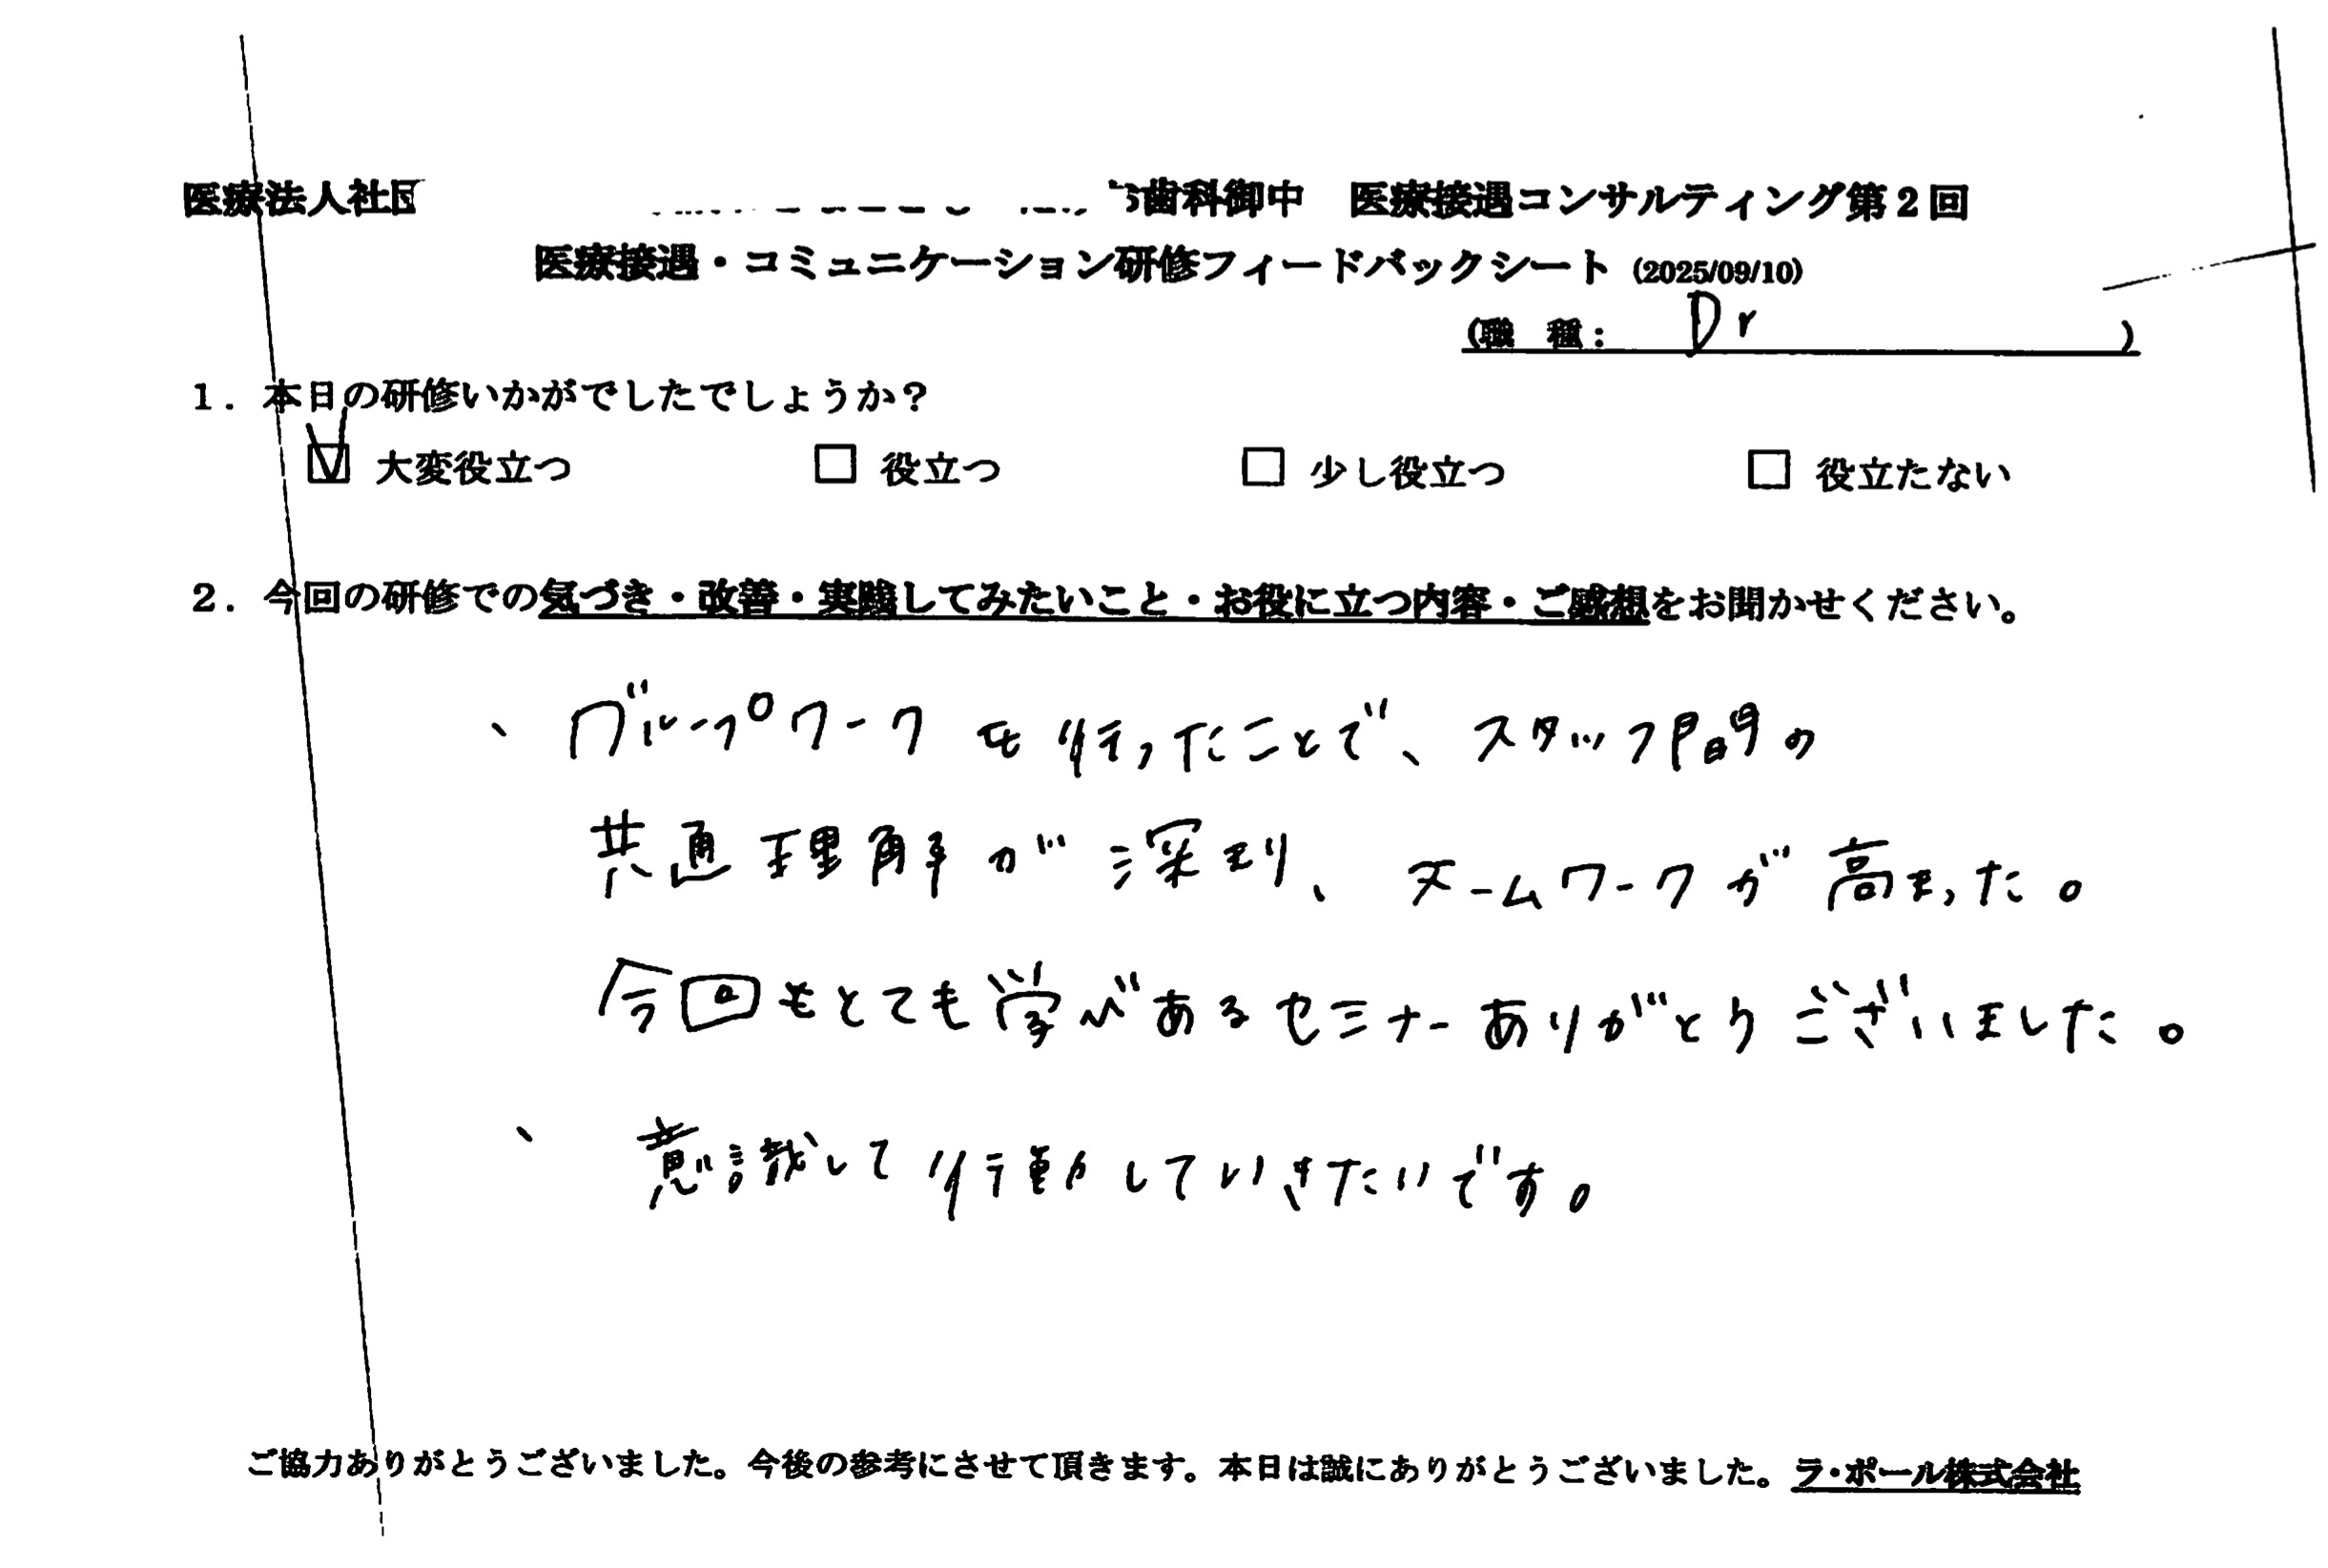 医療法人社団 歯科御中 医療接遇コンサルティング第2回
医療接遇・コミュニケーション研修フィードバックシート (2025/09/10)
(職 種: Dr )
1. 本日の研修いかがでしたでしょうか?
☑ 大変役立つ □ 役立つ □ 少し役立つ □ 役立たない
2. 今回の研修での気づき・改善・実践してみたいこと・お役に立つ内容・ご感想をお聞かせください。
、グループワークを行ったことで、スタッフ間の
共通理解が深まり、チームワークが高まった。
今回もとても学びがあるセミナーありがとうございました。
、意識して行動していきたいです。
ご協力ありがとうございました。今後の参考にさせて頂きます。本日は誠にありがとうございました。ラ・ポール株式会社